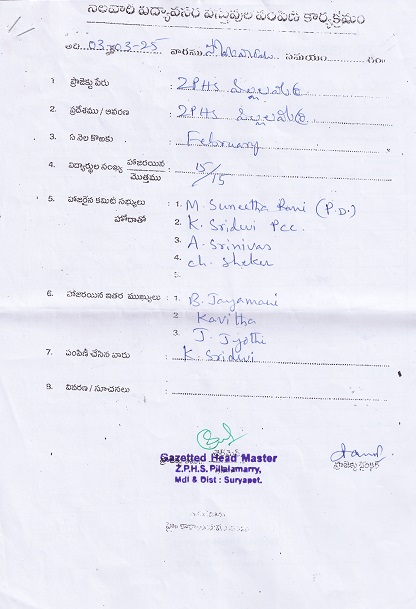 నెలవారి విద్యావసర వస్తువుల పంపిణి కార్యక్రమం
తేది: 03-03-25 వారము సోమవారం సమయం గం॥
1. ప్రాజెక్టు పేరు ZPHS పిల్లలమర్రి
2. ప్రదేశము / ఆవరణ ZPHS పిల్లలమర్రి
3. ఏ నెల కొఱకు February
4. విద్యార్థుల సంఖ్య హాజరయిన / మొత్తము 15/15
5. హాజరైన కమిటి సభ్యులు : 1. M. Suneetha Rani (P.D.)
హోదాతో 2. K. Sridevi Pcc.
3. A. Srinivas
4. ch. Sheker
6. హాజరయిన ఇతర ముఖ్యులు : 1. B. Jayamani
2. Kavitha
3. J. Jyothi
7. పంపిణి చేసిన వారు : K. Sridevi
8. వివరణ / సూచనలు :
Gazetted Head Master
Z.P.H.S. Pillalamarry,
Mdl & Dist : Suryapet.
ప్రాజెక్టు డైరెక్టర్